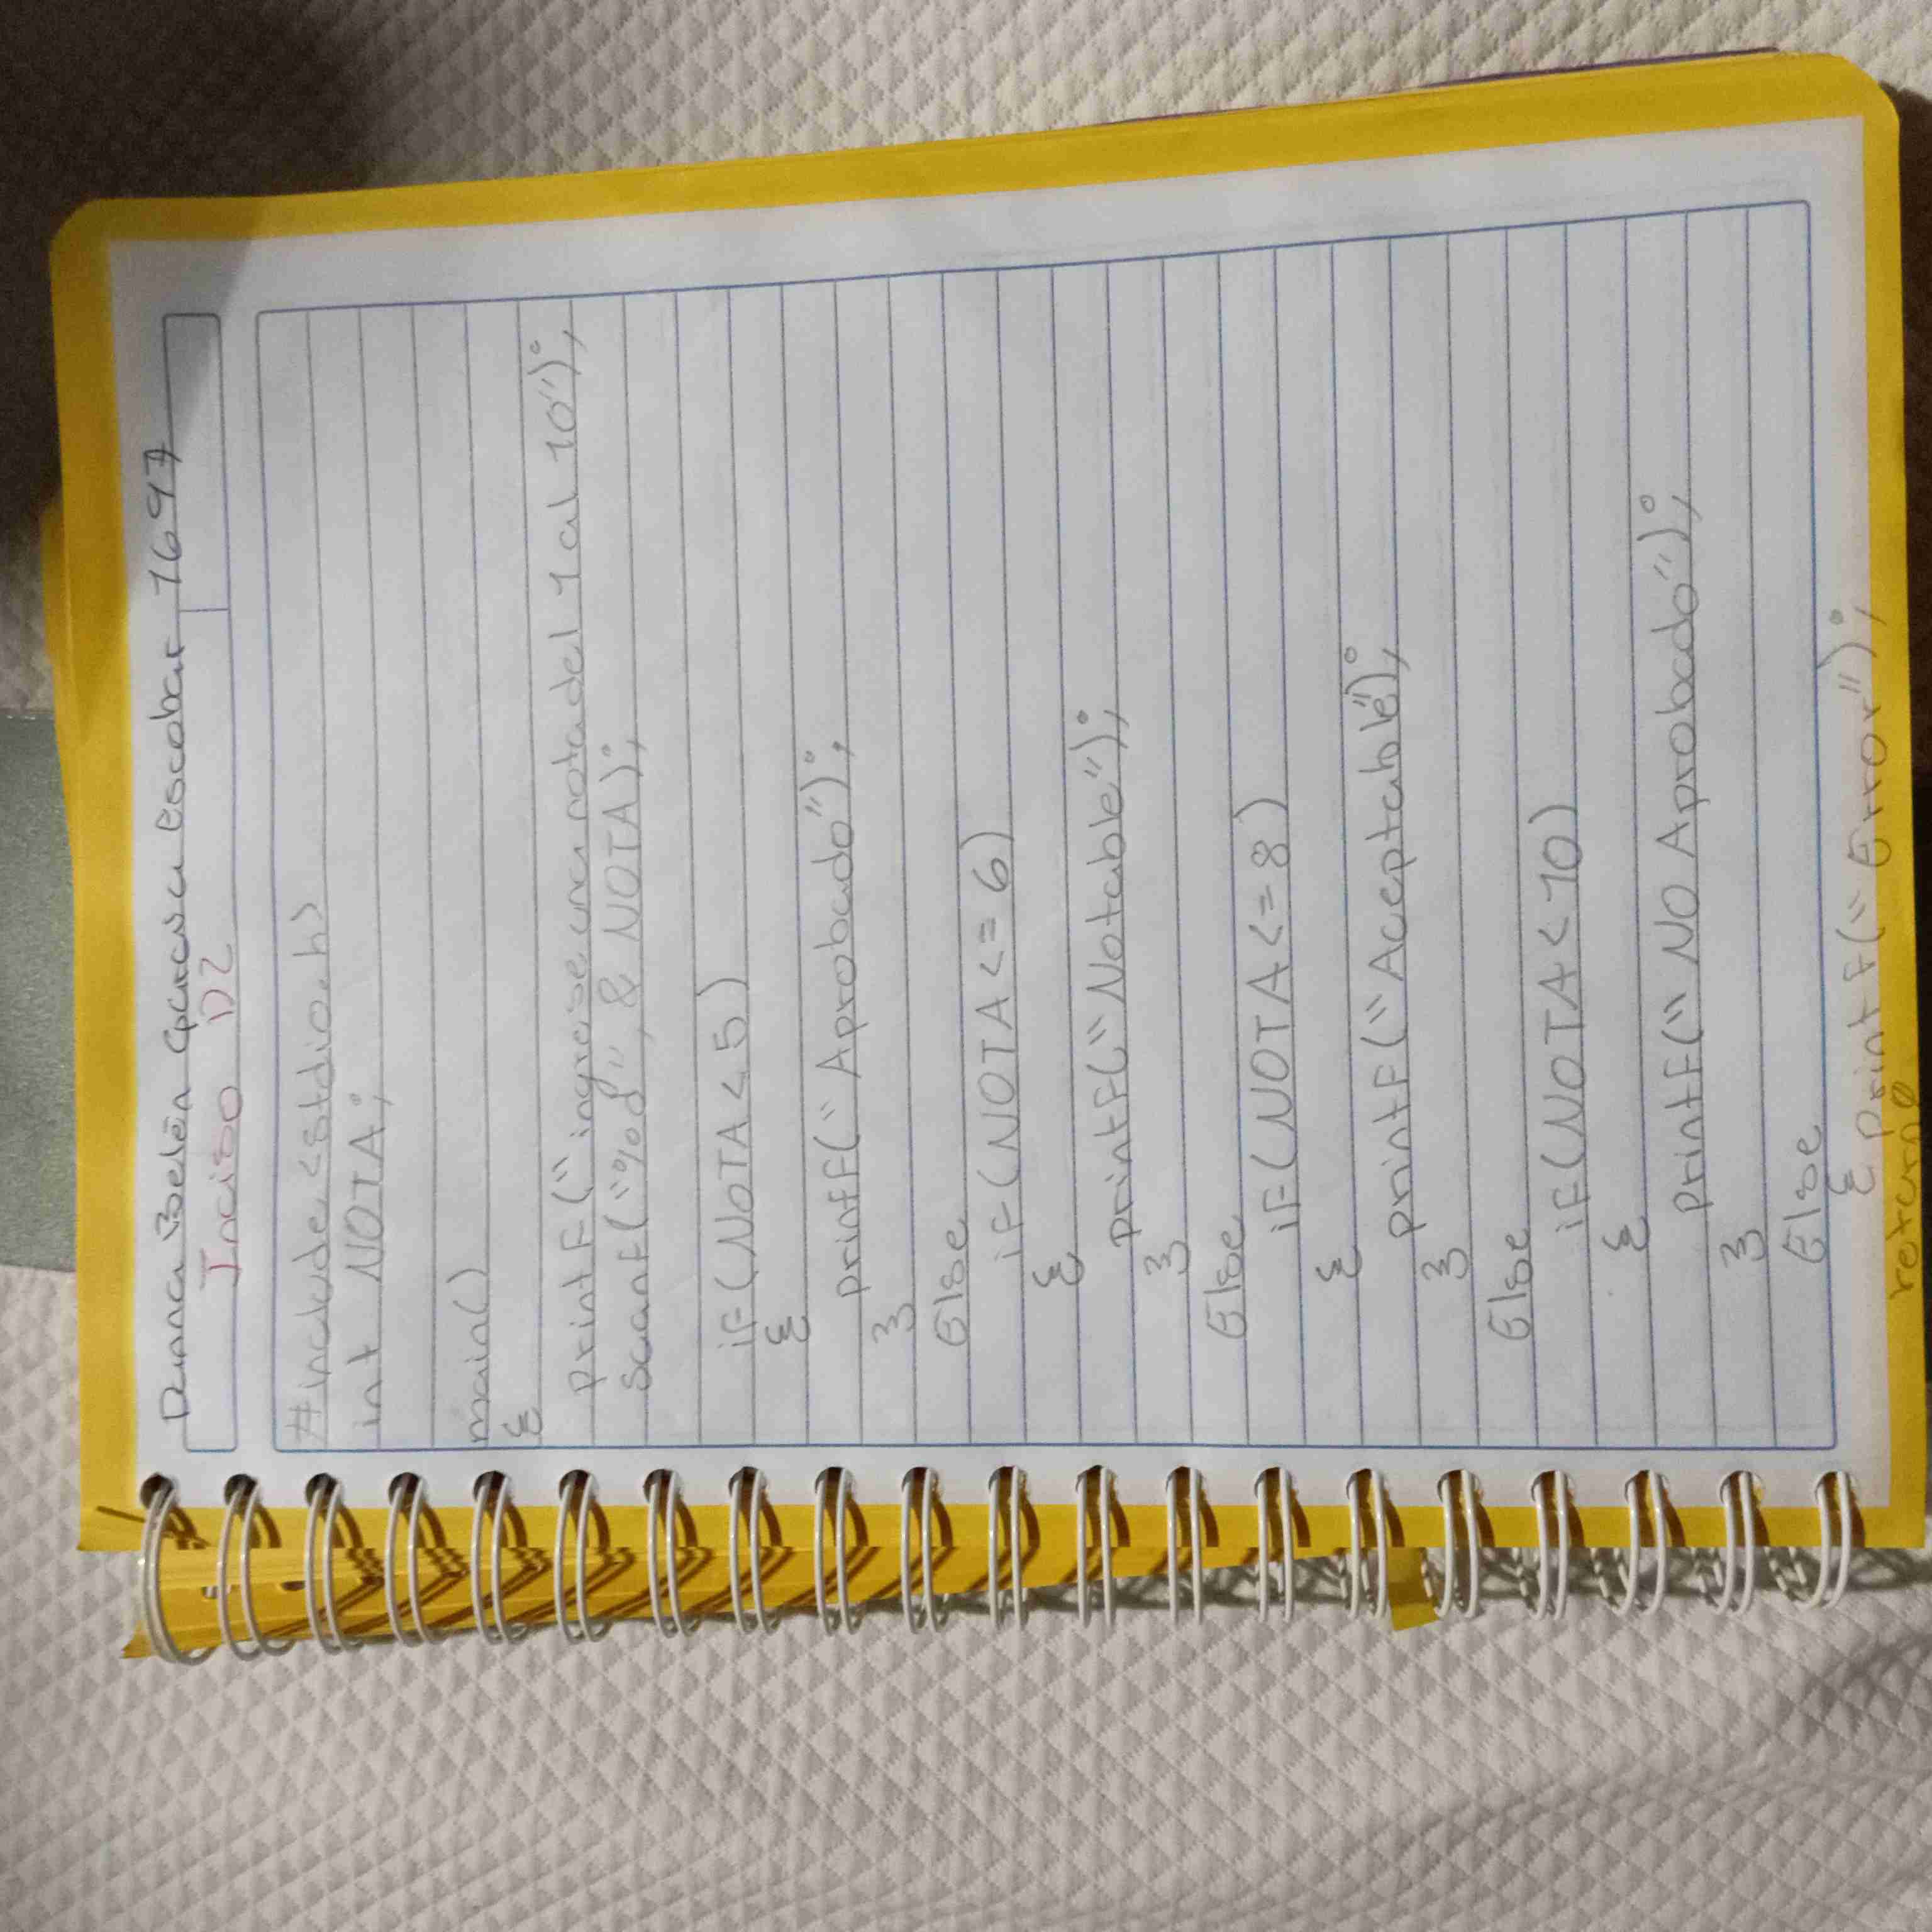 Danna Belén García Escobar 1697
Inciso D2
#include <stdio.h>
int NOTA;
main()
{
printF("ingrese una nota del 1 al 10");
Scanf("%d", & NOTA);
iF(NOTA < 5)
{
printf("Aprobado");
}
Else
iF(NOTA <= 6)
{
printF("Notable");
}
Else
iF(NOTA <= 8)
{
printF("Acceptable");
}
Else
iF(NOTA < 10)
{
PrintF("NO Aprobado");
}
Else
{ PrintF("Error");
return 0